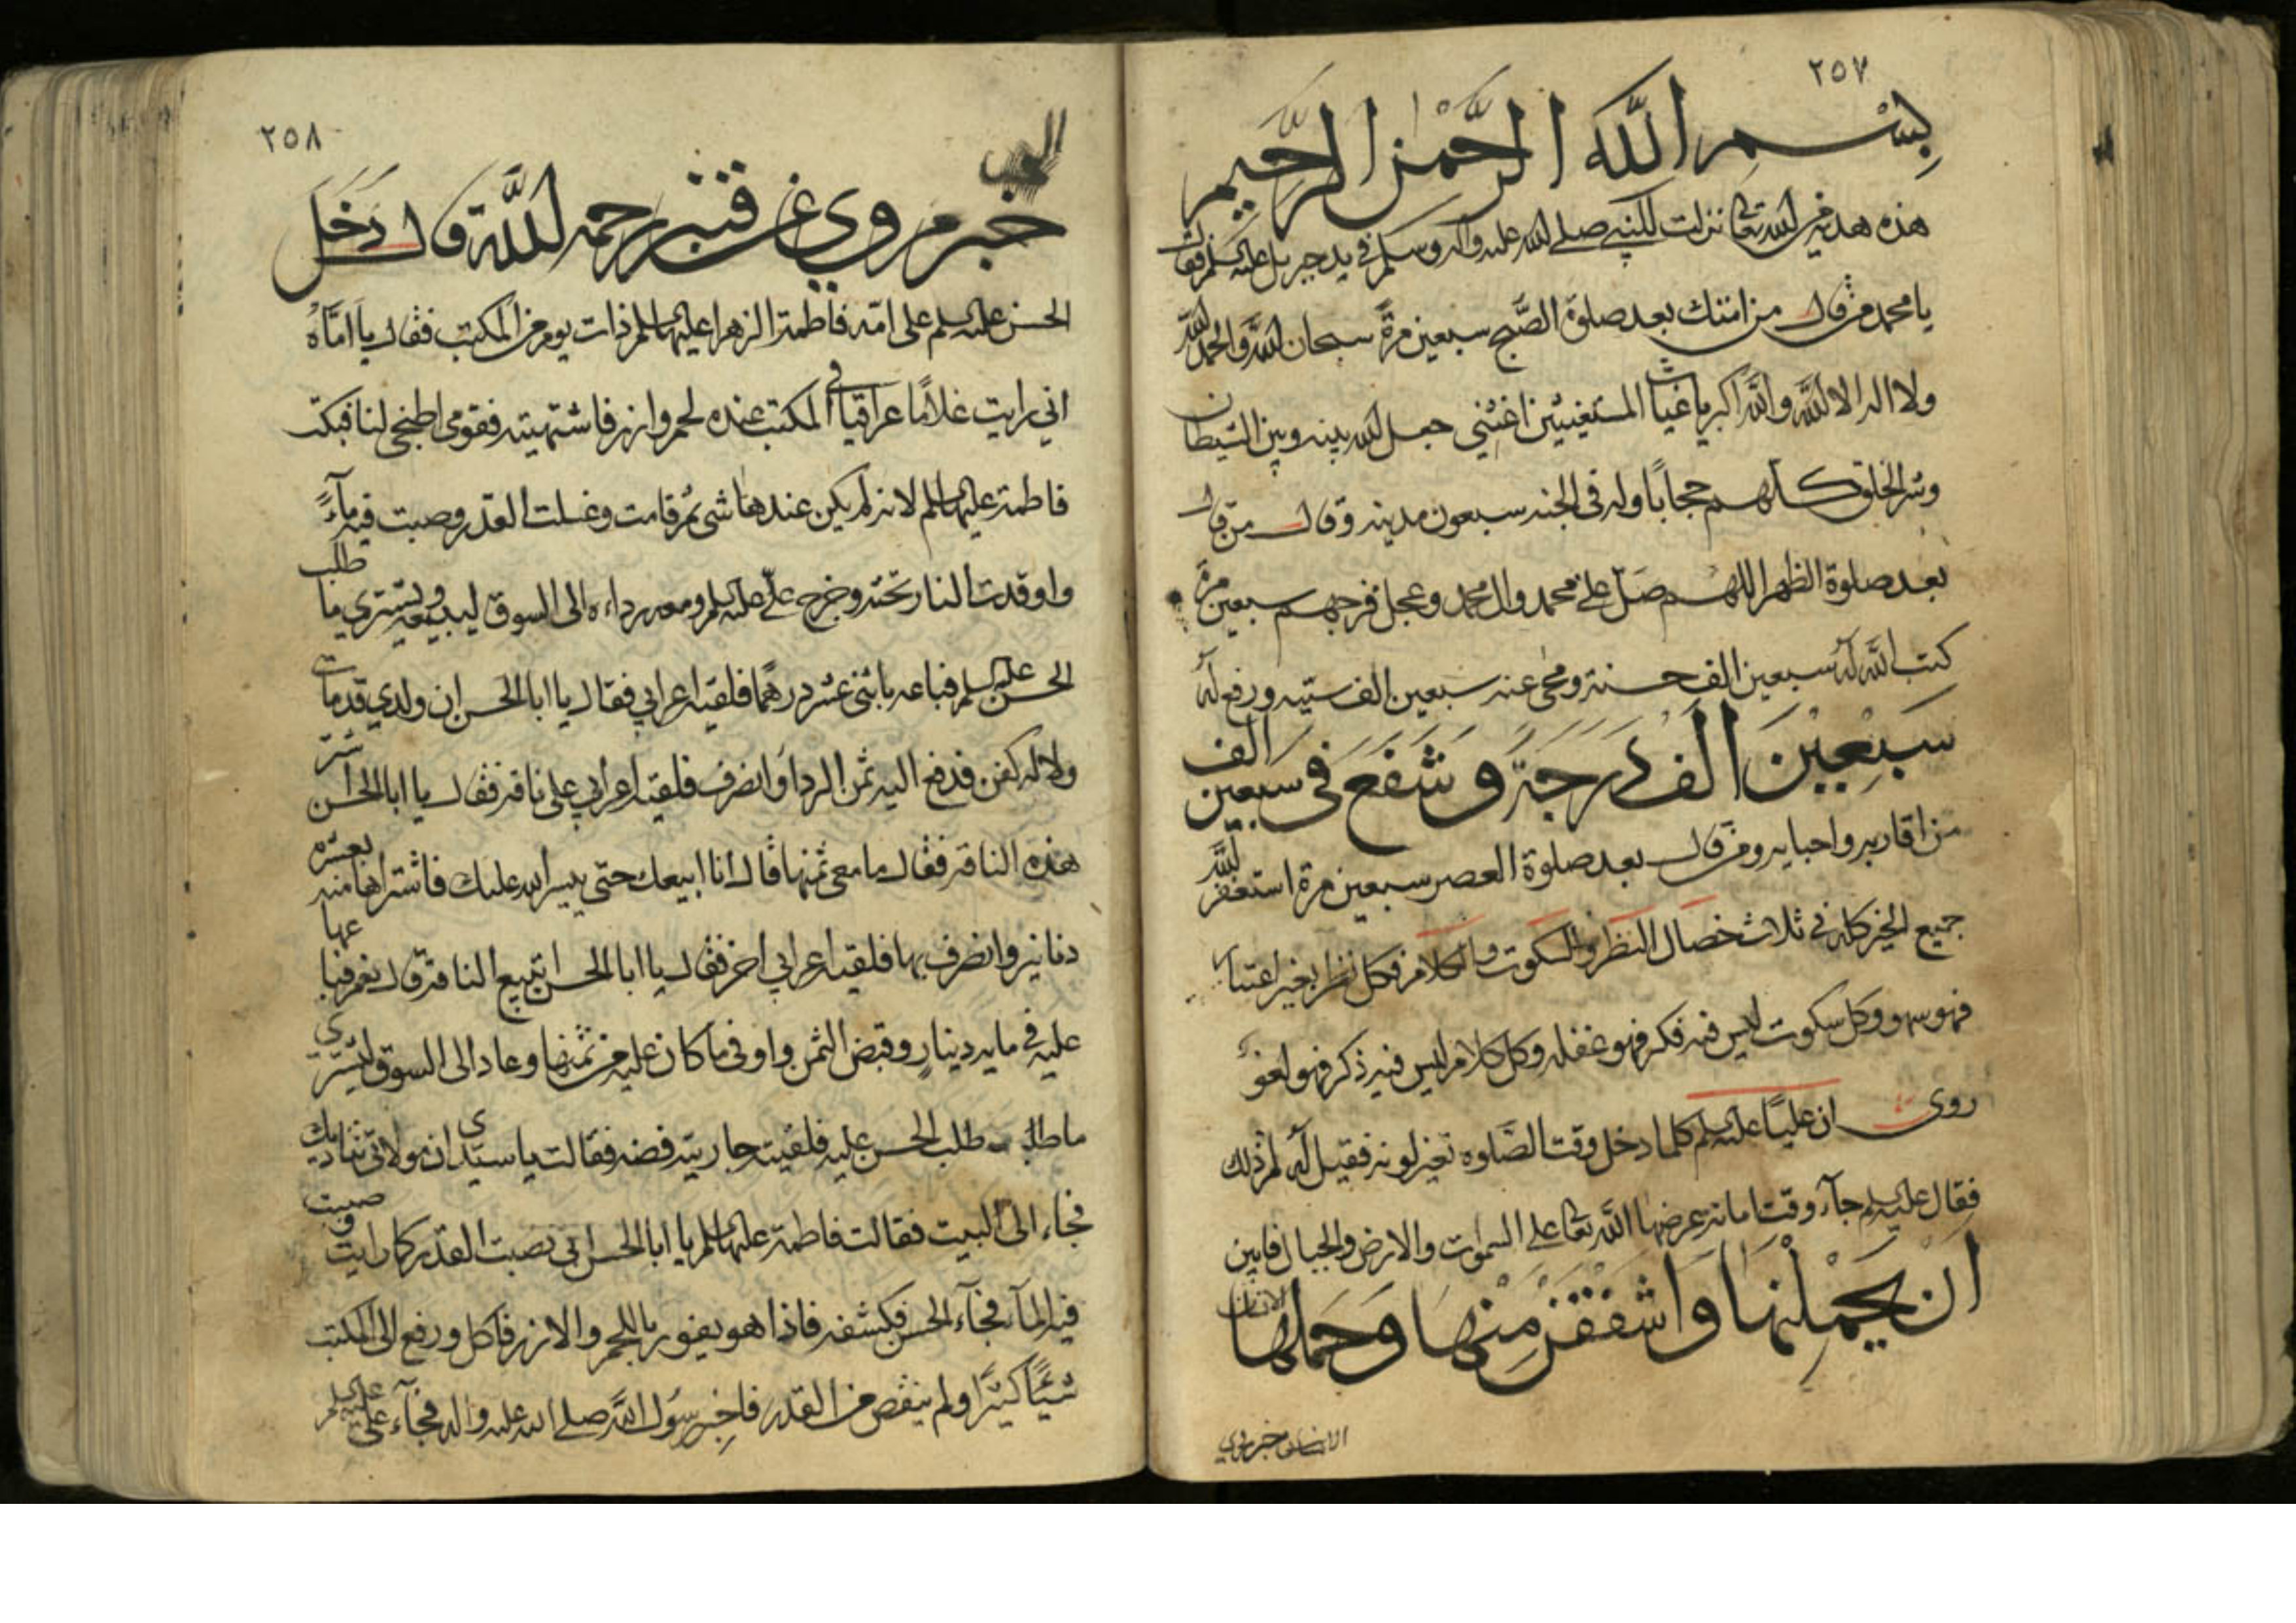 ٢٥٧
بِسْمِ اللَّهِ الرَّحْمٰنِ الرَّحِيمِ
هذه هدية من الله تعالى نزلت للنبي صلى الله عليه واله وسلم في يد جبريل عليه السلم فقال
يا محمد من قال من امتك بعد صلوة الصّبح سبعين مرةً سبحان اللَّه والحمد للَّه
ولا اله الا اللَّه واللَّه اكبر يا غياث المستغيثين اغثني جعل اللَّه بينه وبين الشيطان
وشر الخلق كلهم حجابًا وله في الجنه سبعون مدينه وقال من قال
بعد صلوة الظهر اللهم صَلّ على محمد وال محمد وعجل فرجهم سبعين مرة
كتب اللَّه له سبعين الف حسنة ومحى عنه سبعين الف سيئه ورفع له
سَبْعِيْنَ الف دَرَجَةً وشَفَعَ في سَبعين الف
من اقاربه واحبابه ومن قال بعد صلوة العصر سبعين مرة استغفر اللَّه
جميع الخير كله في ثلاث خصال النظر والسكوت والكلام فكل نظر بغير اعتبار
فهو سهو وكل سكوت ليس فيه فكر فهو غفله وكل كلام ليس فيه ذكر فهو لغو
روى ان عليًا عليه السلم كلما دخل وقت الصّلوه تغير لونه فقيل له لم ذلك
فقال عليه السلم جاء وقت امانة عرضها اللَّه تعالى على السموات والارض والجبال فابين
اَنْ يَحْمِلْنَهَا وَاَشْفَقْنَ مِنْهَا وَحَمَلَهَا الانسان
الانسان خبر مروي
٢٥٨
خبر مروي عن قنبر رحمه اللَّه قال دَخَلَ
الحسن عليه السلم على امّه فاطمة الزهرا عليها السلم ذات يوم من المكتب فقال يا امَّاهُ
اني رايت غلامًا عراقيا في المكتب عنده لحم وارز فاشتهيته فقومي اطبخي لنا فبكت
فاطمة عليها السلم لانه لم يكن عندها شي ثم قامت وغسلت القدر وصبت فيه مآءً
واوقدت النار تحته وخرج عليّ عليه السلم ومعه رداءه الى السوق ليبيعه ويشتري ما طلب
الحسن عليه السلم فباعه باثني عشر درهمًا فلقيه اعرابي فقال يا ابا الحسن ان ولدي قد مات
ولا له كفن فدفع اليه ثمن الردا وانصرف فلقيه اعرابي على ناقه فقال يا ابا الحسن اشتر
هذه الناقه فقال ما معي ثمنها قال انا ابيعك حتى ييسر اللَّه عليك فاشتراها منه بعشره
دنانير وانصرف بها فلقيه اعرابي اخر فقال يا ابا الحسن اتبيع الناقة قال نعم فباعها
عليه في مايه دينار وقبض الثمن واوفى ما كان عليه من ثمنها وعاد الى السوق ليشتري
ما طلب الحسن عليه فلقيته جاريته فضه فقالت يا سيدي ان مولاتي تناديك
فجاء الى البيت فقالت فاطمة عليها السلم يا ابا الحسن اني نصبت القدر كما رايت وصببت
فيه المآء فجآء الحسن فكشفه فاذا هو يفور باللحم والارز فاكل ورفع الى المكتب
شيًأ كثيرًا ولم ينقص من القدر فاخبر رسُول اللَّه صلى الله عليه واله فجآء علي عليه السلم